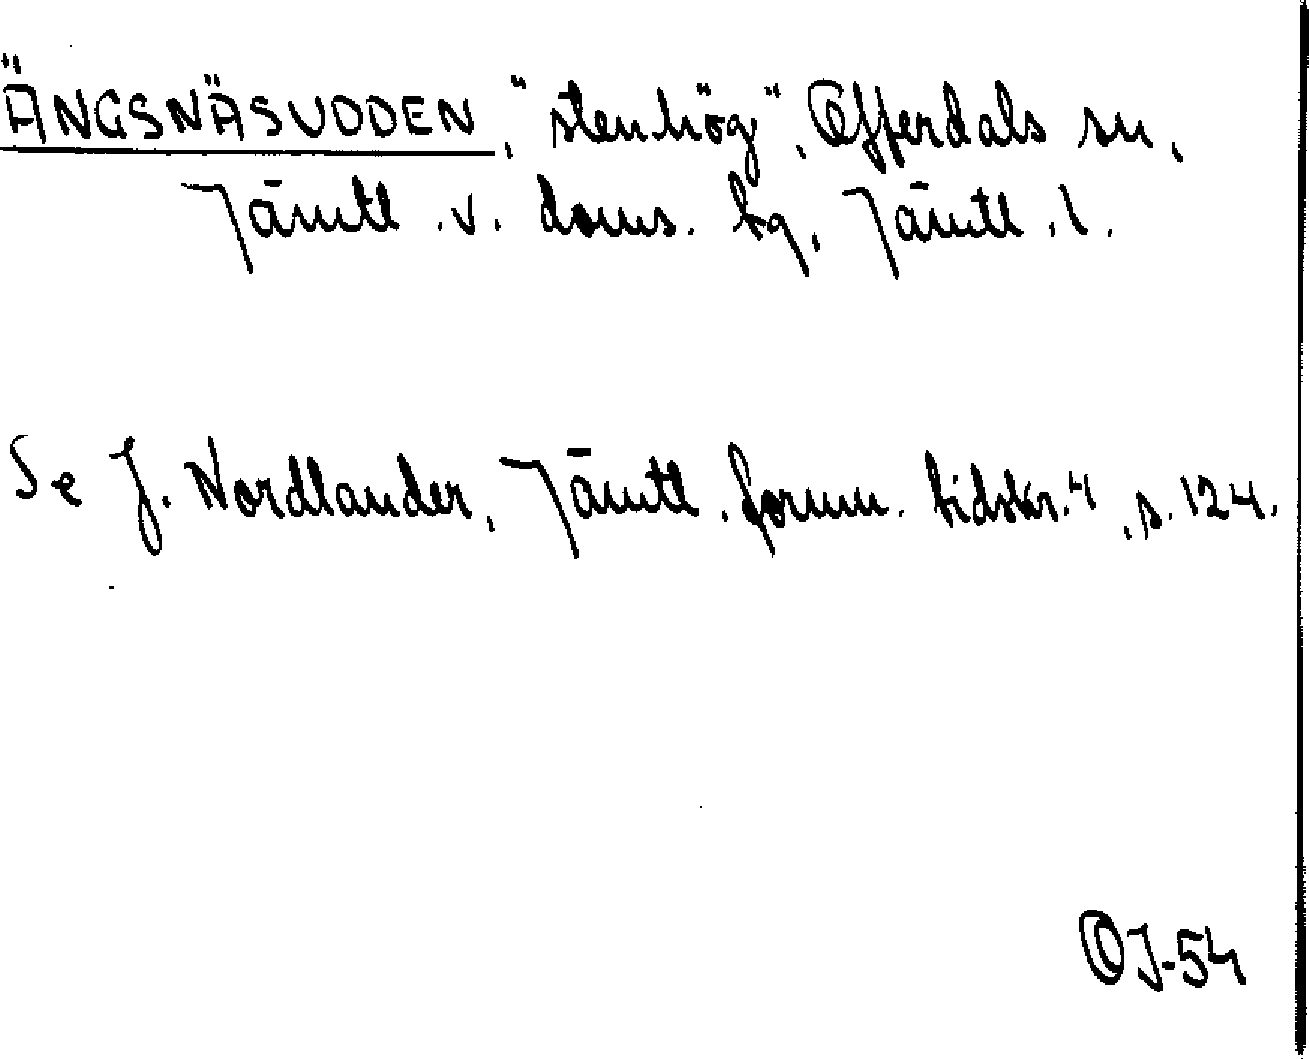 ÄNGSNÄSUDDEN, "stenhög", Offerdals sn,
Jämtl. v. doms. tg, Jämtl. l.
Se J. Nordlander, Jämtl. fornm. tidskr. 4, s. 124.
OJ-54